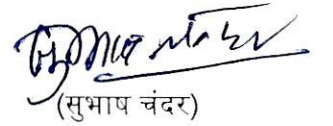 (सुभाष चंदर)